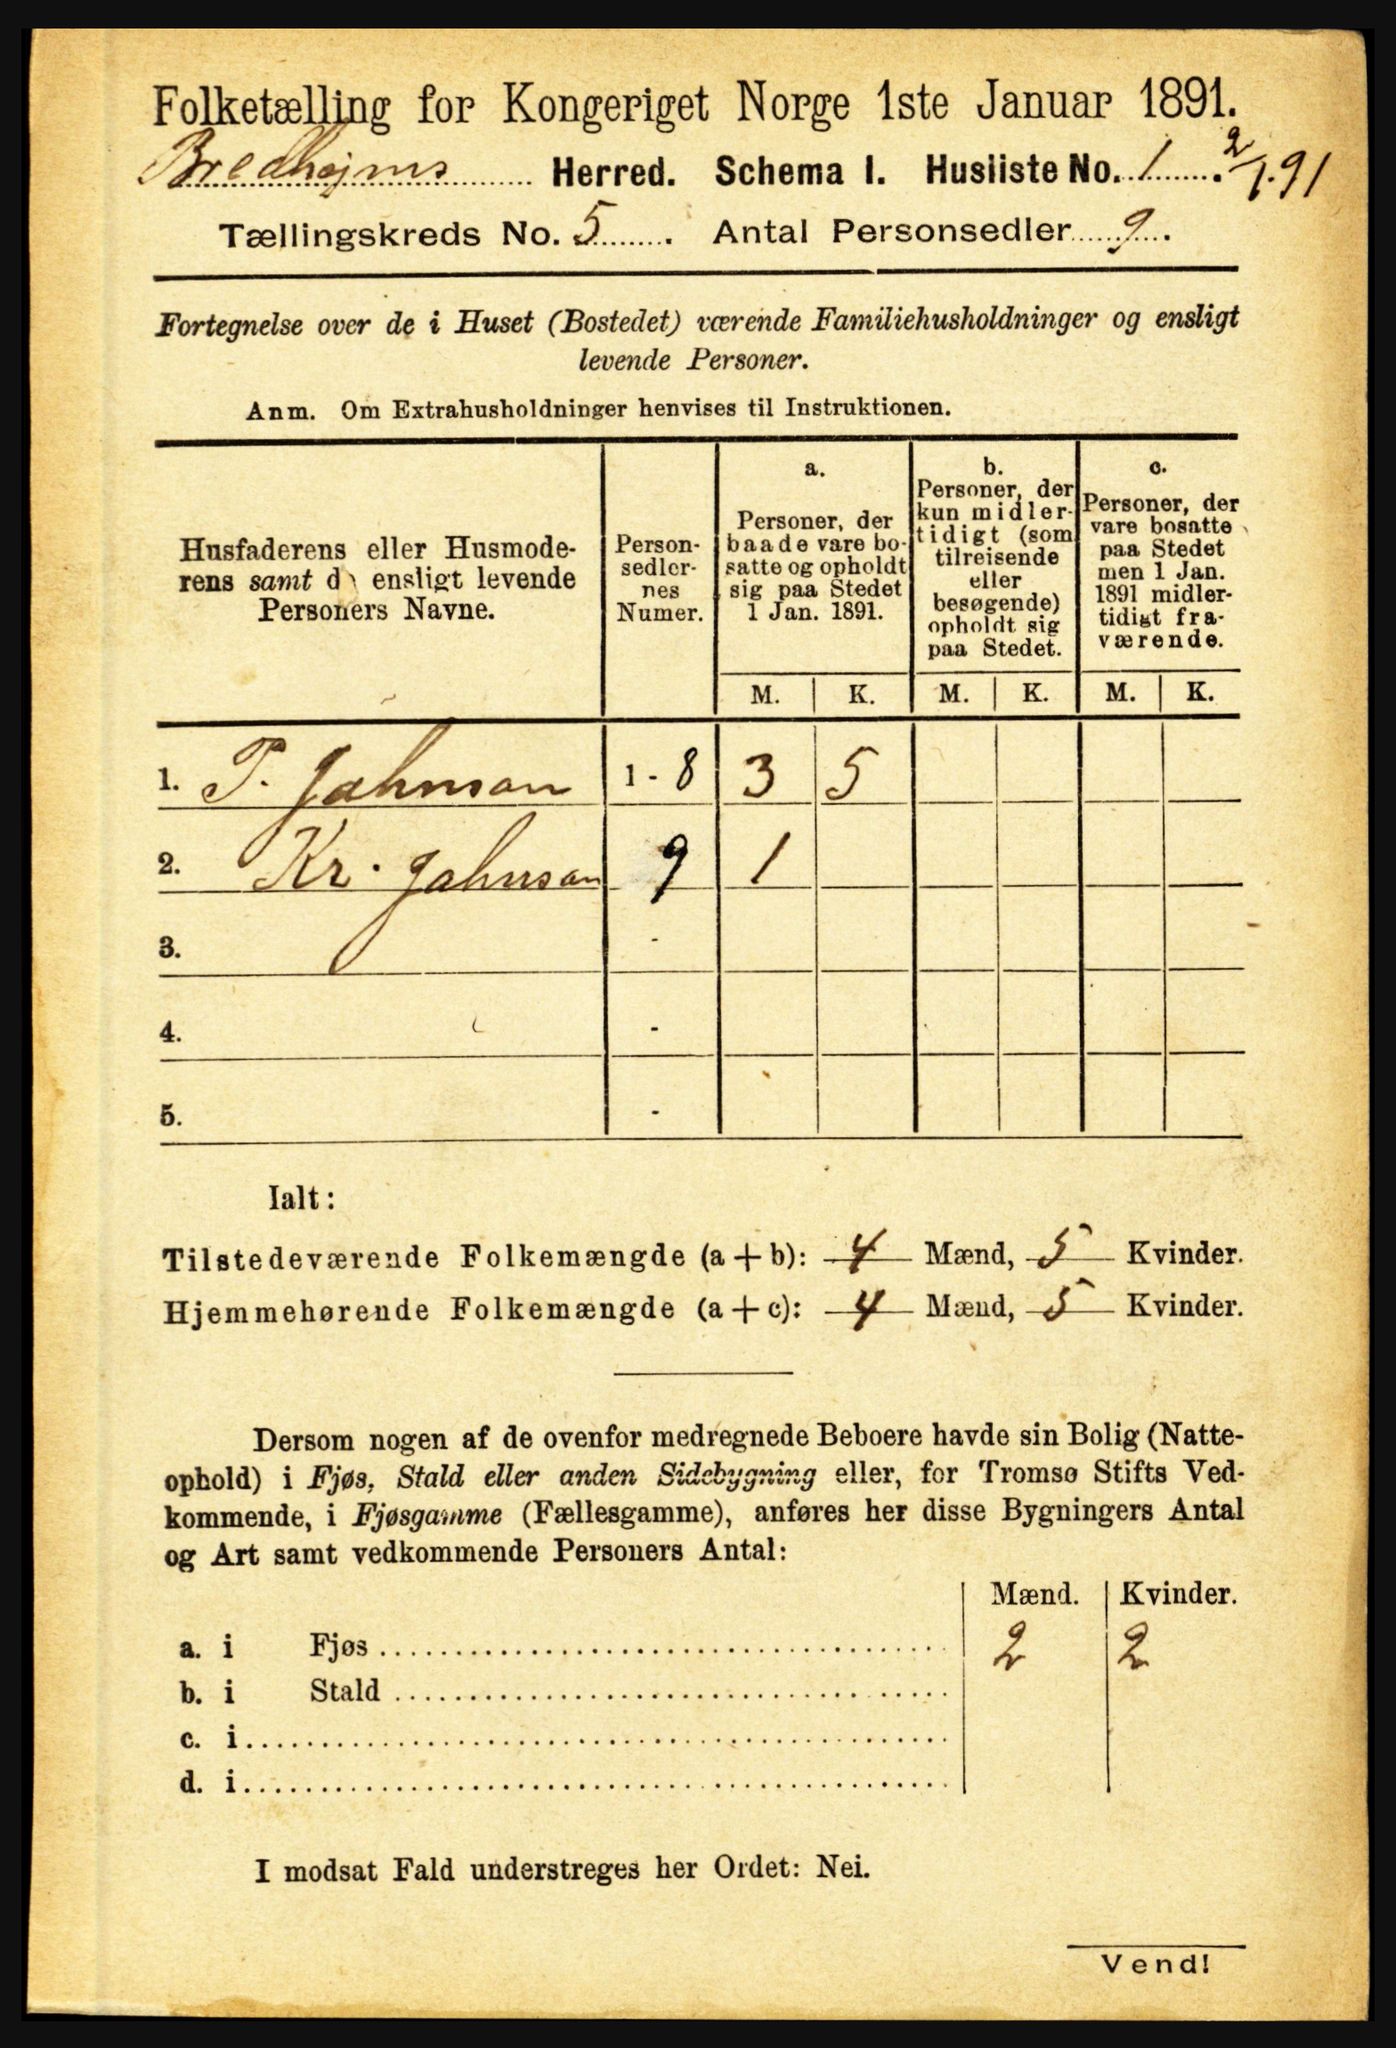 Folketælling for Kongeriget Norge 1ste Januar 1891.
Bredhejms Herred. Schema I. Husliste No. 1. 2/1.91
Tællingskreds No. 5. Antal Personsedler 9.
Fortegnelse over de i Huset (Bostedet) værende Familiehusholdninger og ensligt
levende Personer.
Anm. Om Extrahusholdninger henvises til Instruktionen.
Husfaderens eller Husmode-
rens samt d ensligt levende
Personers Navne.
Person-
sedler-
nes
Numer.
a.
Personer, der
baade vare bo-
satte og opholdt
sig paa Stedet
1 Jan. 1891.
b.
Personer, der
kun midler-
tidigt (som
tilreisende
eller
besøgende)
opholdt sig
paa Stedet.
c.
Personer, der
vare bosatte
paa Stedet
men 1 Jan.
1891 midler-
tidigt fra-
værende.
M. K. M. K. M. K.
1. P. Jahnson 1 - 8 3 5
2. Kr. Jahnson 9 1
3. -
4. -
5. -
Ialt:
Tilstedeværende Folkemængde (a + b): 4 Mænd, 5 Kvinder.
Hjemmehørende Folkemængde (a + c): 4 Mænd, 5 Kvinder.
Dersom nogen af de ovenfor medregnede Beboere havde sin Bolig (Natte-
ophold) i Fjøs, Stald eller anden Sidebygning eller, for Tromsø Stifts Ved-
kommende, i Fjøsgamme (Fællesgamme), anføres her disse Bygningers Antal
og Art samt vedkommende Personers Antal:
Mænd. Kvinder.
a. i Fjøs 2 2
b. i Stald
c. i
d. i
I modsat Fald understreges her Ordet: Nei.
Vend!